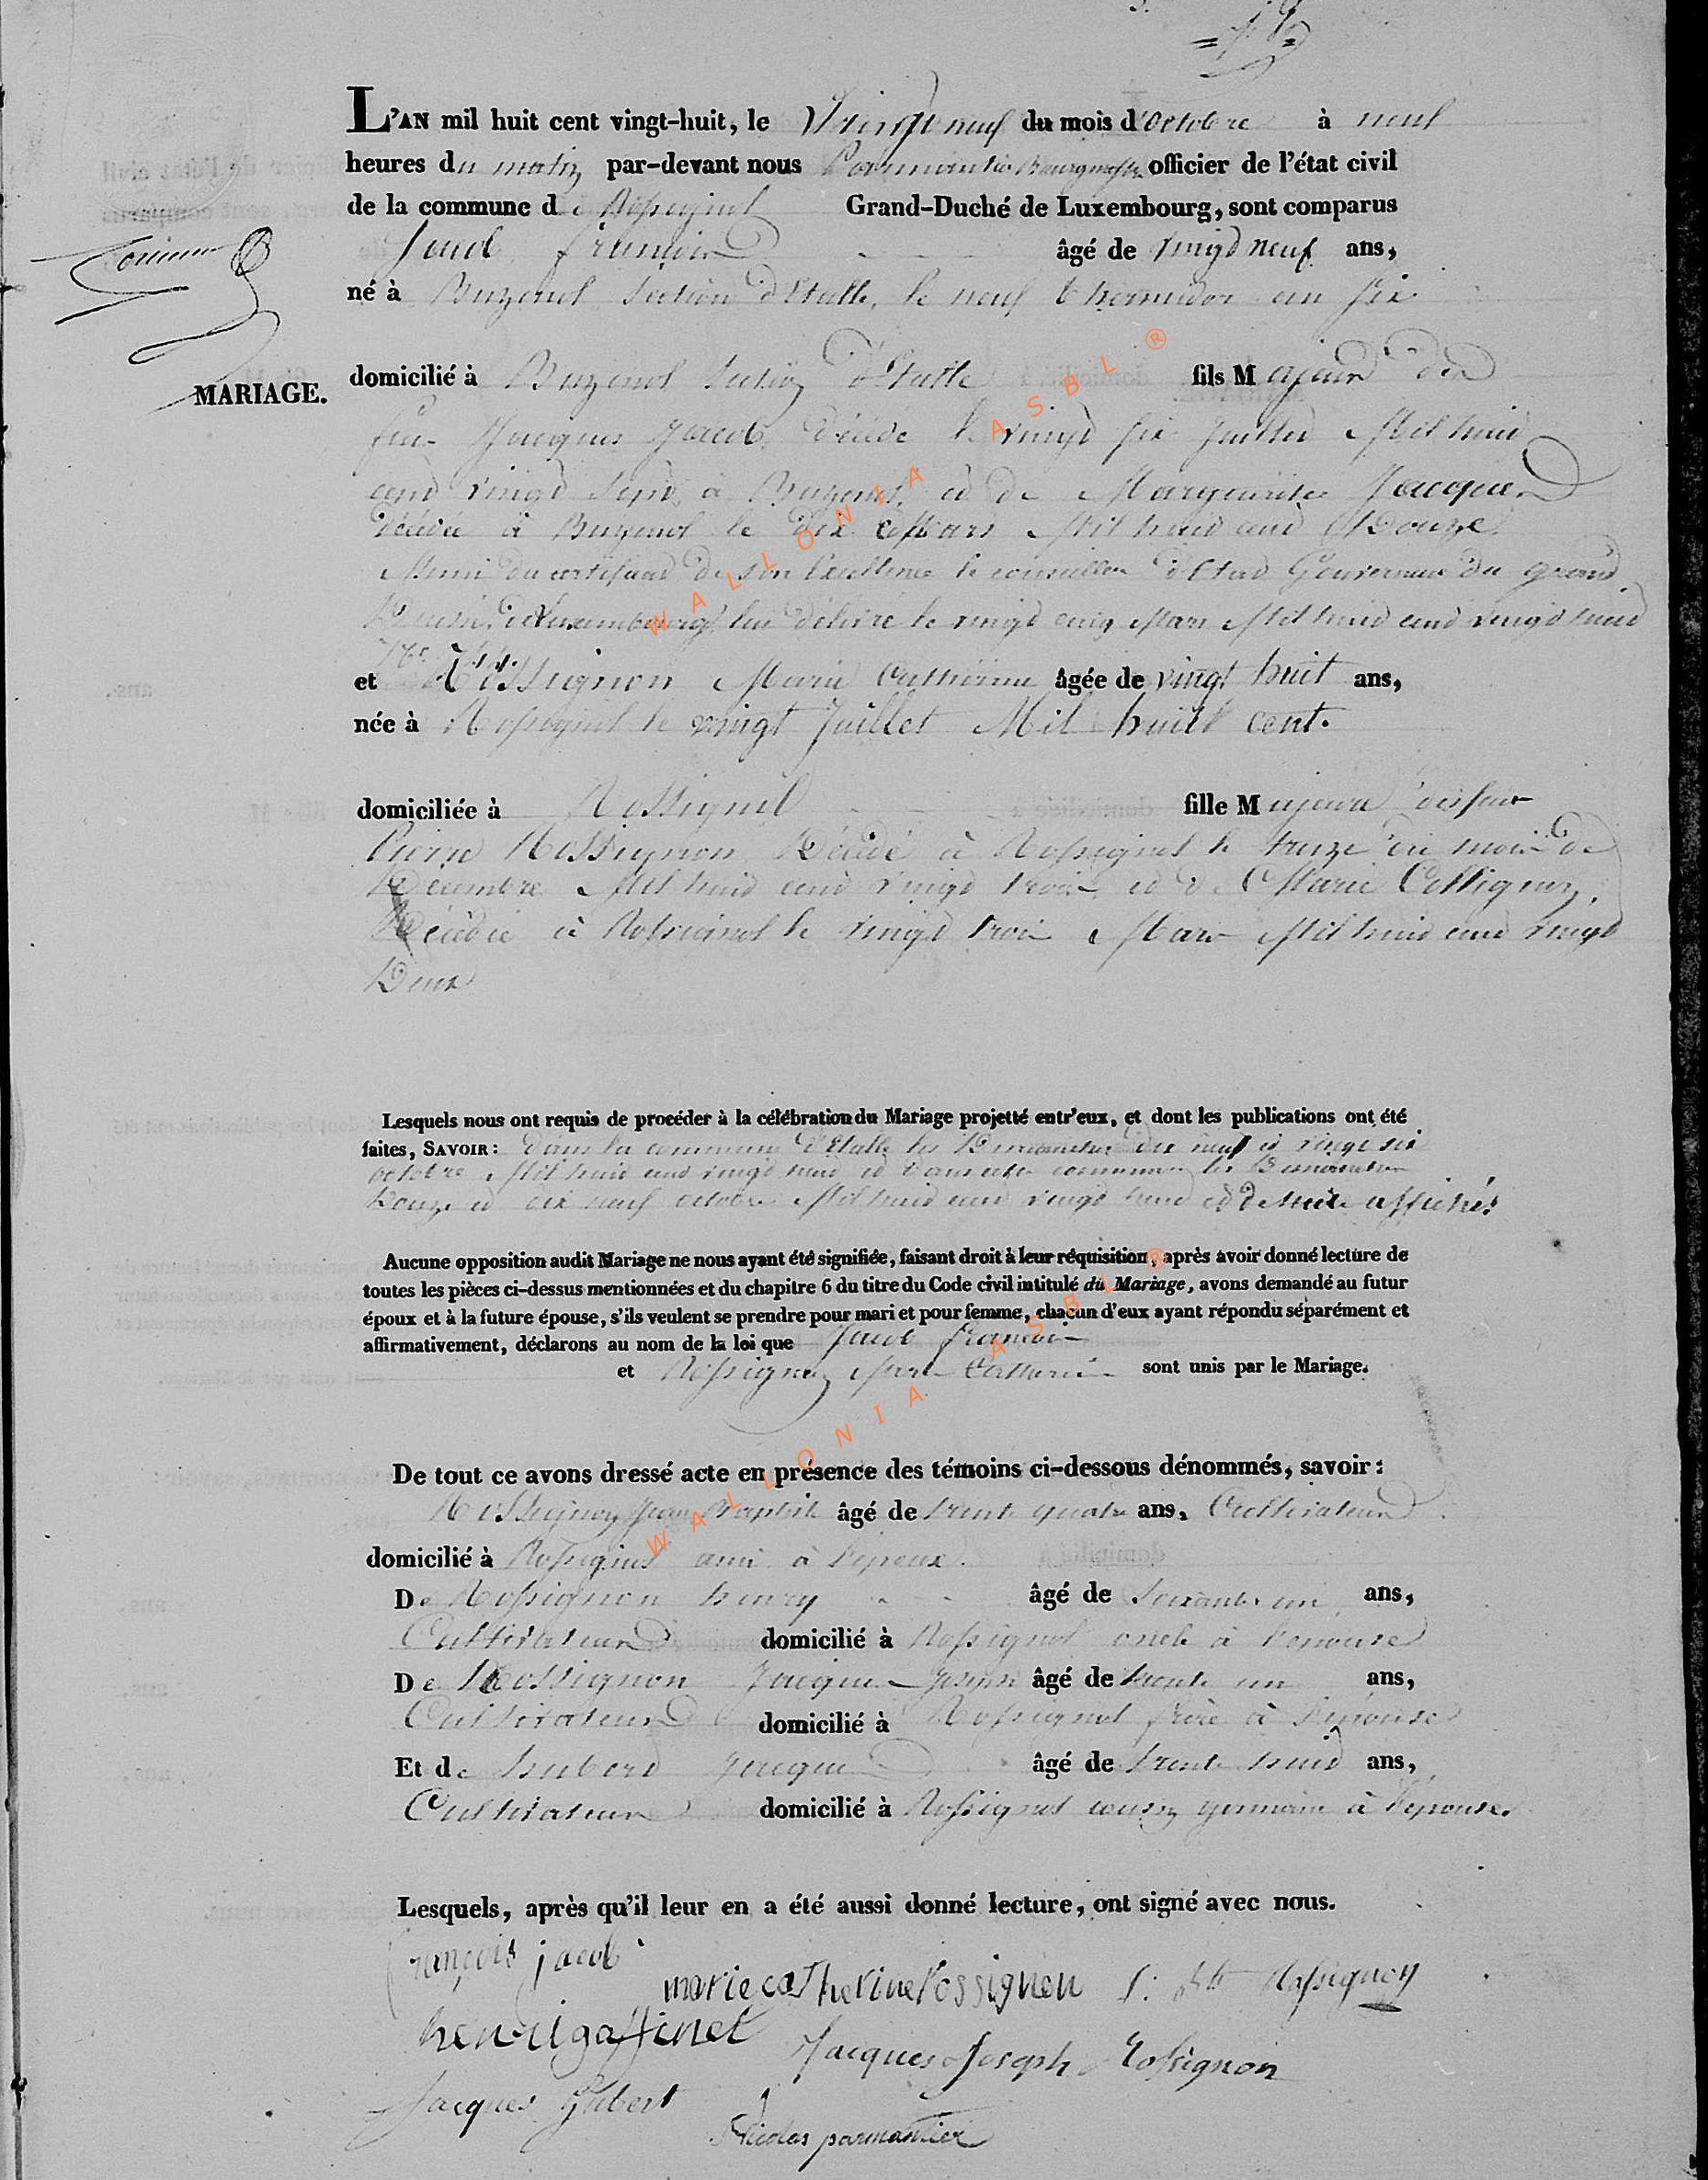 = 19 =
L'AN mil huit cent vingt-huit, le Vingt neuf du mois d'octobre à neuf
heures du matin par-devant nous Parmantier Bourgmestre officier de l'état civil
de la commune de Rossignol Grand-Duché de Luxembourg, sont comparus
Jacob françois âgé de vingt neuf ans,
né à Buzenol Section d'Etalle, le neuf thermidor an six
MARIAGE.
domicilié à Buzenol Section d'Etalle fils Majeur de
feu Jacques Jacob, décédé le vingt six Juillet Mil huit
cent vingt sept à Buzenol, et de Marguerite Jacques
décédée à Buzenol le dix Mars Mil huit cent Douze
Muni du certificat de son Excellence le conseiller d'Etat Gouverneur du grand
Duché de Luxembourg lui délivré le vingt cinq Mars Mil huit cent vingt huit
et Rossignon Marie Catherine âgée de vingt huit ans,
née à Rossignol le vingt Juillet Mil huit cent.
domiciliée à Rossignol fille Majeure de feu
Pierre Rossignon Décédé à Rossignol le treize du mois de
Décembre Mil huit cent vingt trois et de Marie Collignon,
Décédée à Rossignol le vingt trois Mars Mil huit cent vingt
Deux
Lesquels nous ont requis de procéder à la célébration du Mariage projetté entr'eux, et dont les publications ont été
faites, SAVOIR: Dans la commune d'Etalle les Dimanches dix neuf et vingt six
octobre Mil huit cent vingt huit et dans cette commune les Dimanches
Douze et dix neuf octobre Mil huit cent vingt huit et de suite affichés
Aucune opposition audit Mariage ne nous ayant été signifiée, faisant droit à leur réquisition, après avoir donné lecture de
toutes les pièces ci-dessus mentionnées et du chapitre 6 du titre du Code civil intitulé du Mariage, avons demandé au futur
époux et à la future épouse, s'ils veulent se prendre pour mari et pour femme, chacun d'eux ayant répondu séparément et
affirmativement, déclarons au nom de la loi que Jacob françois
et Rossignon Marie Catherine sont unis par le Mariage.
De tout ce avons dressé acte en présence des témoins ci-dessous dénommés, savoir:
Rossignon Jean Baptiste âgé de trente quatre ans, Cultivateur
domicilié à Rossignol ami à l'epoux.
De Rossignon henry âgé de Soixante un ans,
Cultivateur domicilié à Rossignol oncle à l'epouse
De Rossignon Jacques Joseph âgé de trente un ans,
Cultivateur domicilié à Rossignol frère à l'épouse
Et de hubert Jacques âgé de trente huit ans,
Cultivateur domicilié à Rossignol cousin germain à l'épouse.
Lesquels, après qu'il leur en a été aussi donné lecture, ont signé avec nous.
françois jacob
marie catherine rossignon J: Bte Rossignon
henri gaffinet
Jacques Joseph Rossignon
Jacques Hubert
Nicolas parmantier
WALLONIA ASBL ®
WALLONIA ASBL ®